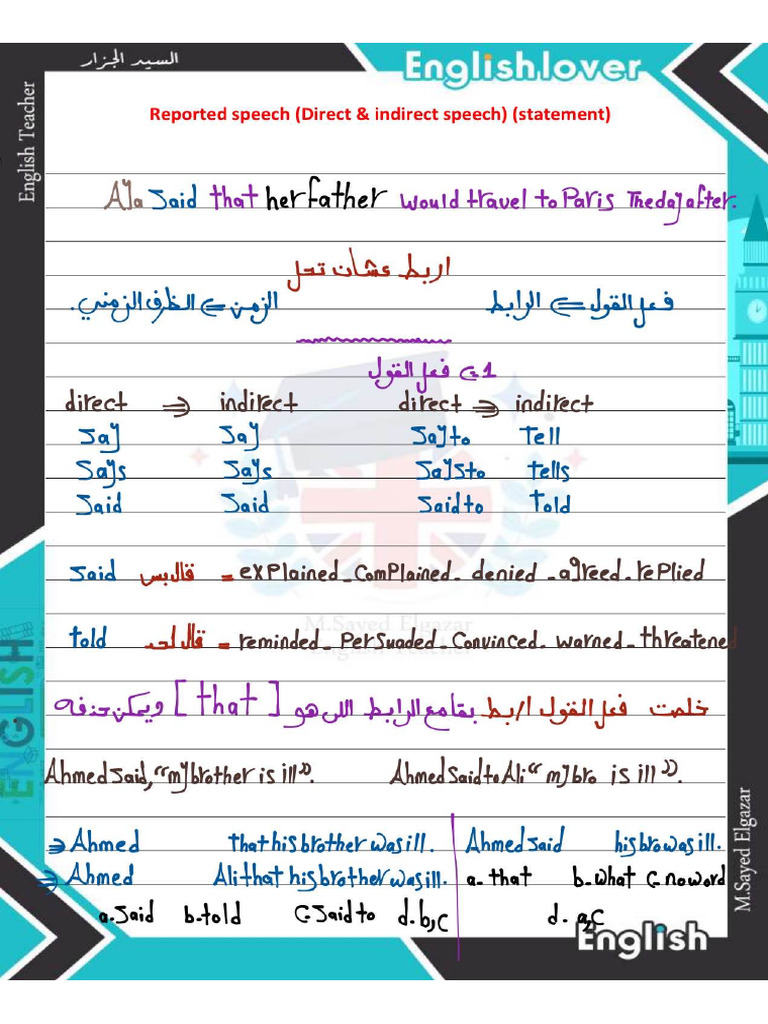 السيد الجزار
Englishlover
English Teacher
Reported speech (Direct & indirect speech) (statement)
Aya said that her father would travel to Paris The day after.
اربط عشان تحل
فعل القول ⇐ الرابط الزمن ⇐ الظرف الزمني.
1 ⇐ فعل القول
direct ⇒ indirect direct ⇒ indirect
Say Say Say to Tell
Says Says Says to tells
Said Said Said to Told
Said قال بس = explained - complained - denied - agreed - replied
M.Sayed Elgazar
English Teacher
told قال لحد = reminded - persuaded - convinced - warned - threatened
ENGLISH
خلصت فعل القول اربط بقا مع الرابط اللى هو [that] ويمكن حذفه
Ahmed said, "my brother is ill". Ahmed said to Ali "my bro is ill".
⇒ Ahmed that his brother was ill. Ahmed said his bro was ill.
⇒ Ahmed Ali that his brother was ill. a. that b. what c. no word
a. said b. told c. said to d. b,c d. a,c
M.Sayed Elgazar
English